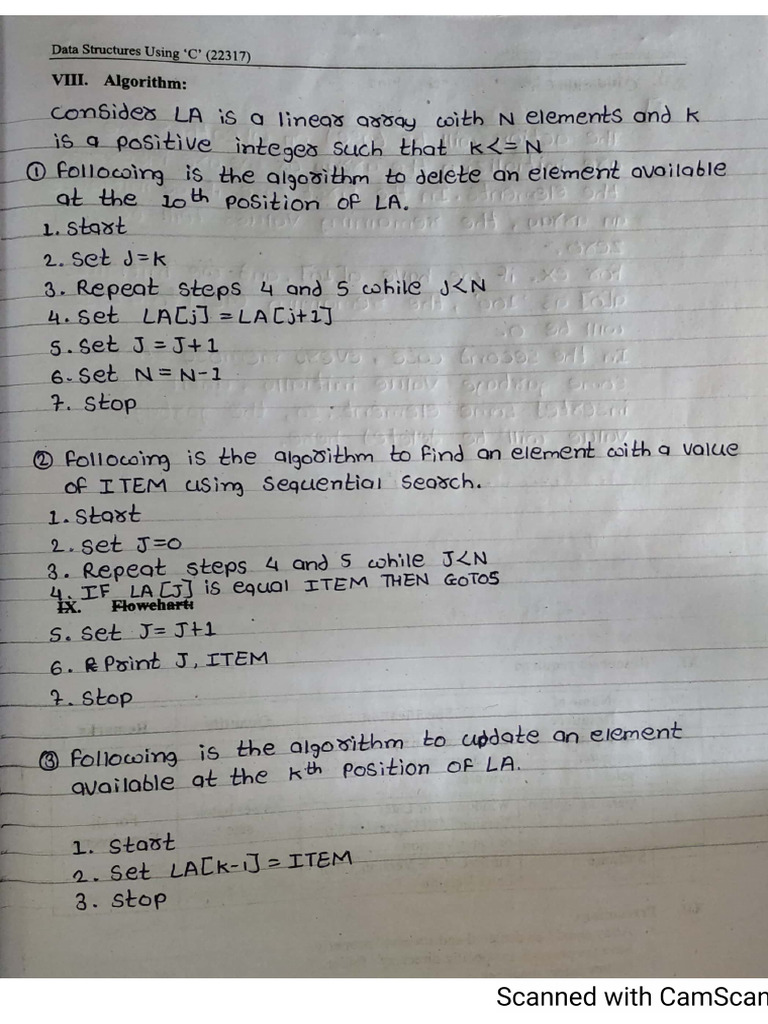 Data Structures Using 'C' (22317)
VIII. Algorithm:
Consider LA is a linear array with N elements and K
is a positive integer such that K<=N
① Following is the algorithm to delete an element available
at the 10th position of LA.
1. Start
2. Set J=K
3. Repeat steps 4 and 5 while J<N
4. Set LA[j] = LA[j+1]
5. Set J = J+1
6. Set N = N-1
7. Stop
② Following is the algorithm to find an element with a value
of ITEM using Sequential Search.
1. Start
2. Set J=0
3. Repeat steps 4 and 5 while J<N
4. IF LA[J] is equal ITEM THEN GOTO5
IX. Flowchart:
5. Set J= J+1
6. Print J, ITEM
7. Stop
③ Following is the algorithm to update an element
available at the Kth position of LA.
1. Start
2. Set LA[K-1] = ITEM
3. Stop
Scanned with CamScan